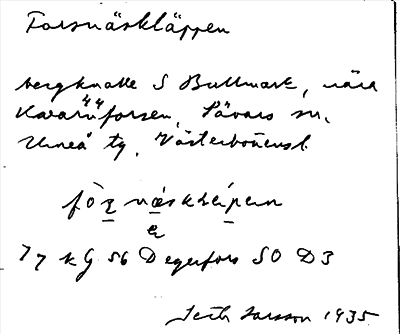 Forsnäskläppen
bergknalle S Bullmark, nära
Kvarnforsen, Sävars sn,
Umeå tg, Västerbottensl
77 kG 56 Degerfors SO D3
Seth Larsson 1935